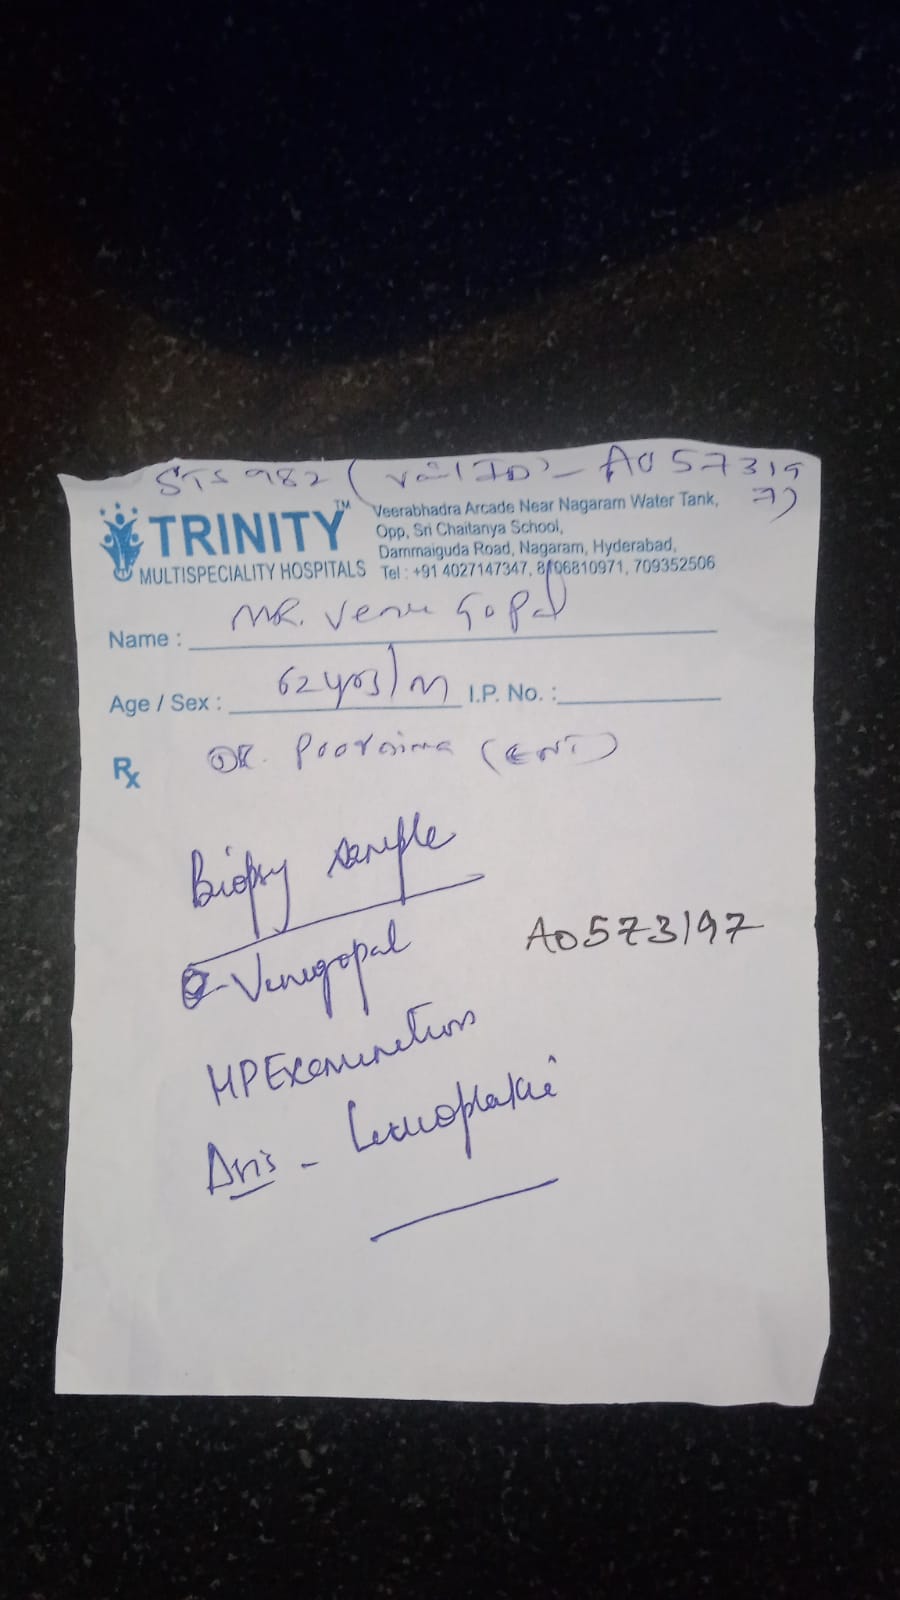 STS 982 ( Vail ID) - A0 57319
7)
TRINITY™
MULTISPECIALITY HOSPITALS
Veerabhadra Arcade Near Nagaram Water Tank,
Opp, Sri Chaitanya School,
Dammaiguda Road, Nagaram, Hyderabad,
Tel : +91 4027147347, 8106810971, 709352506
Name : MR. Venu Gopal
Age / Sex : 62 yrs / M I.P. No. :
Rx DR. Poornima (ENT)
Biopsy sample
Venugopal
A0573197
HPExamination
Leukoplakia